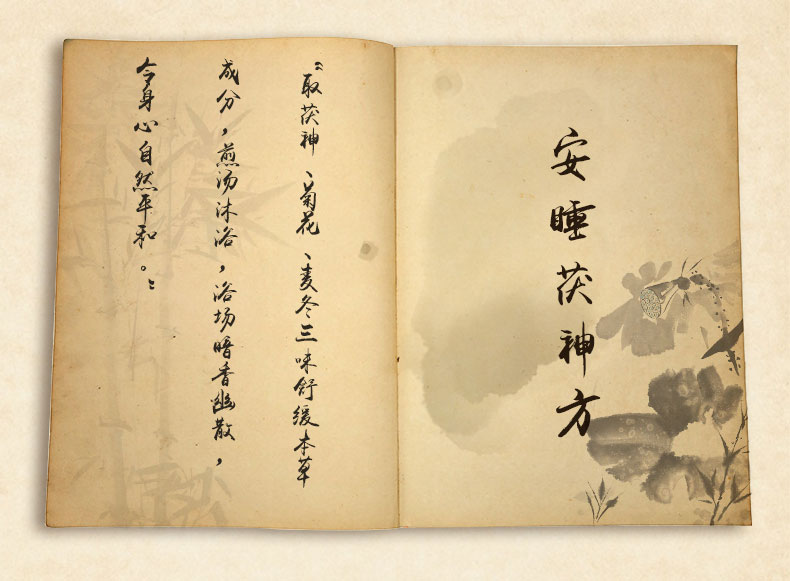 安睡茯神方
“取茯神、菊花、麦冬三味舒缓本草
成分，煎汤沐浴，浴场暗香幽散，
令身心自然平和。”